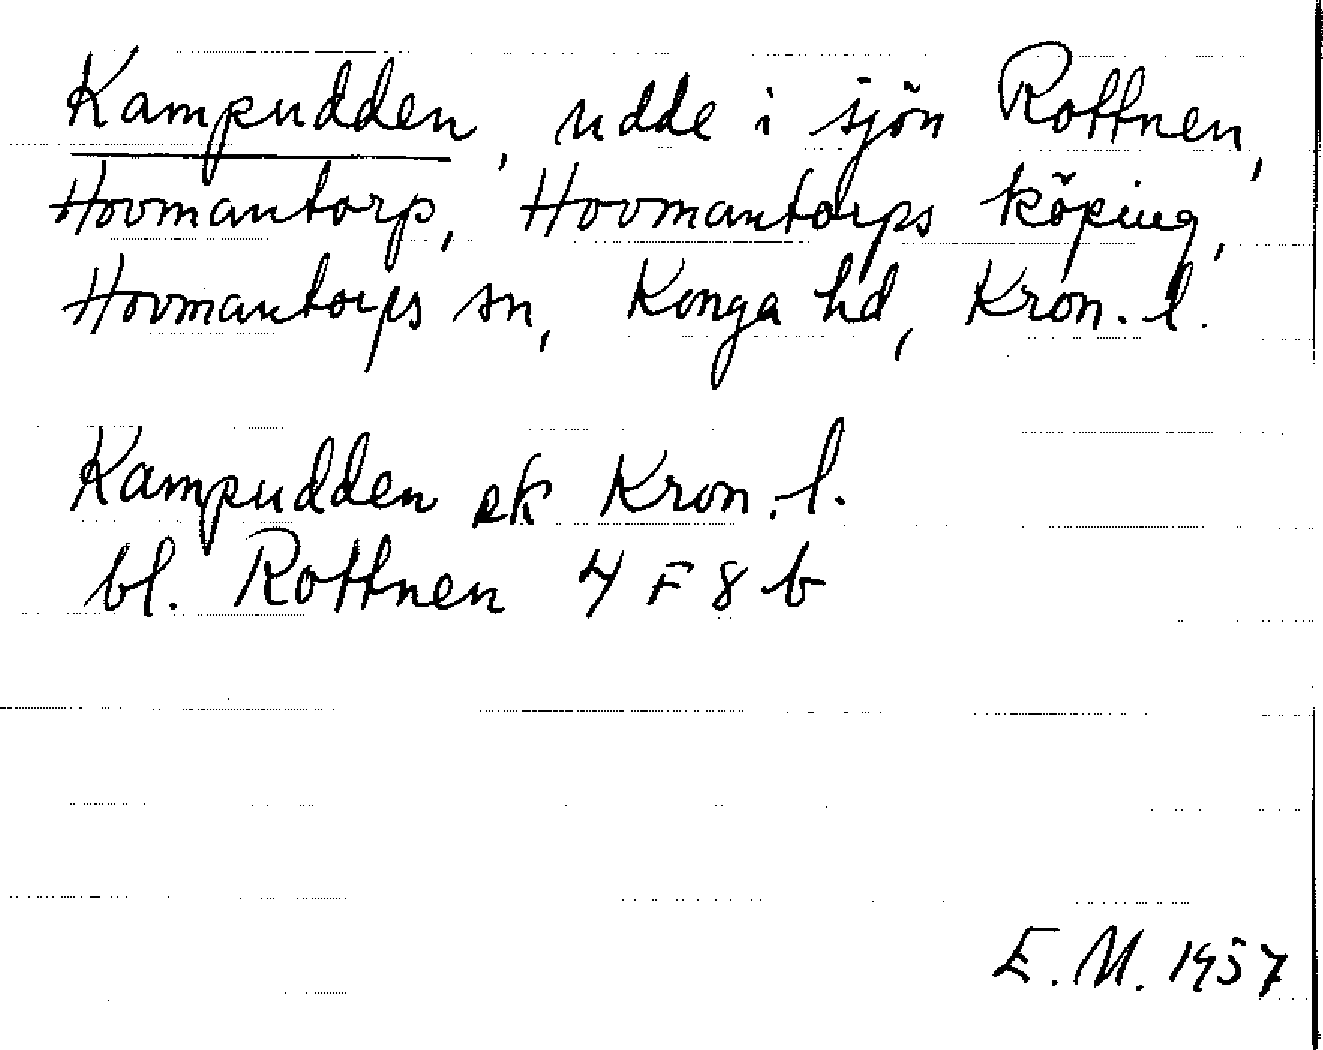 Kampudden, udde i sjön Rottnen,
Hovmantorp, Hovmantorps köping,
Hovmantorps sn, Konga hd, Kron. l.
Kampudden ek Kron. l.
bl. Rottnen 4 F 8 b
E.M. 1957